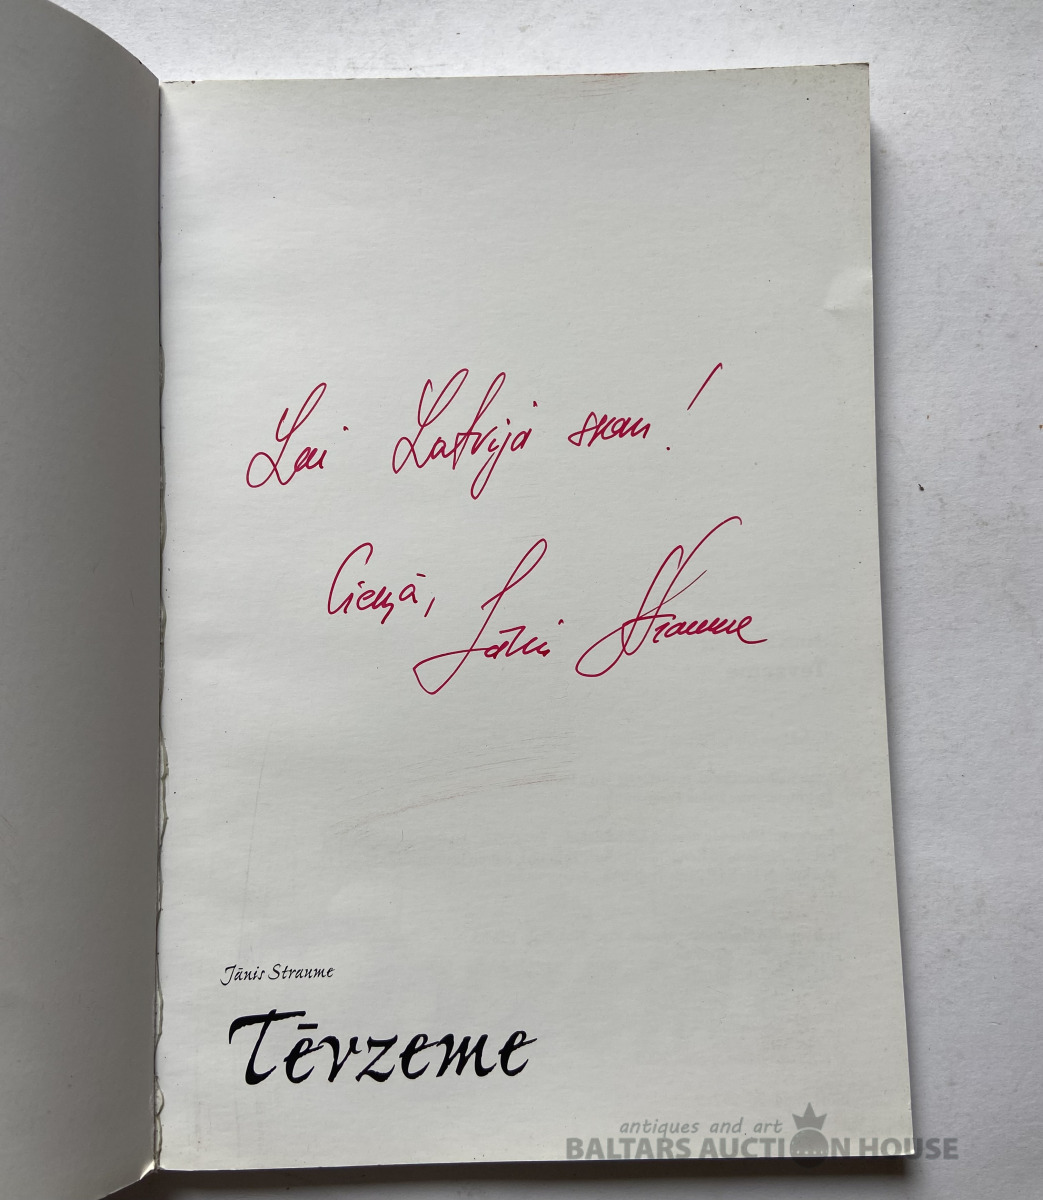 Lai Latvijā skan!
Cieņā, Jānis Straume
Jānis Straume
Tēvzeme
antiques and art
BALTARS AUCTION HOUSE